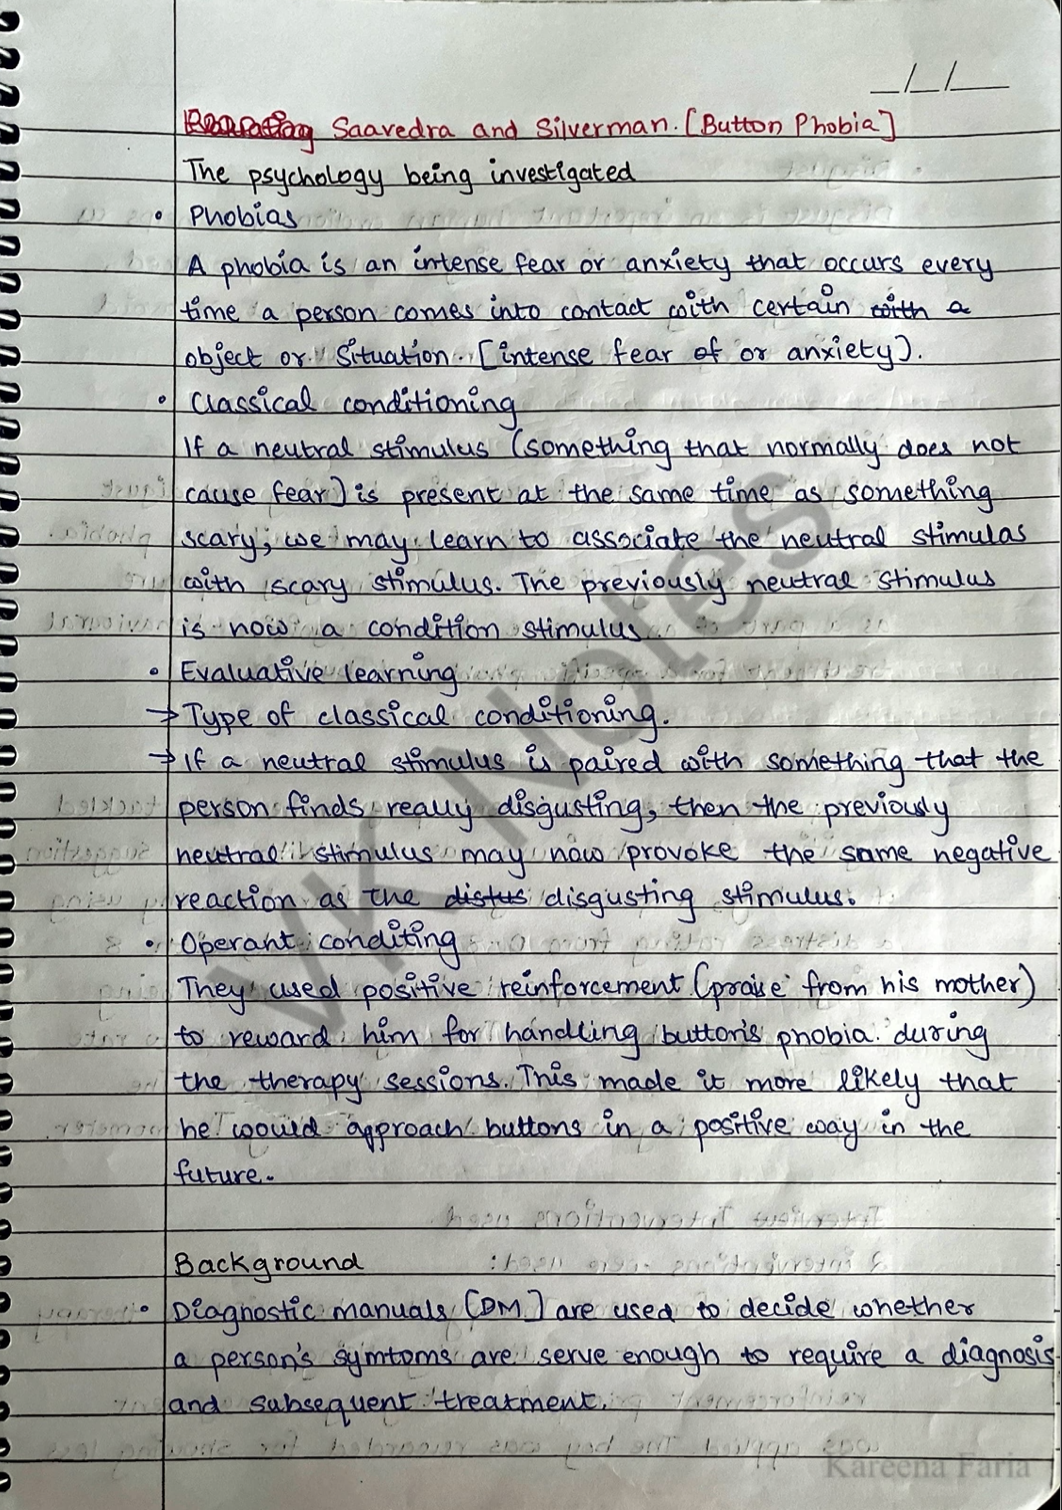 _/_/__
Saavedra and Silverman. [Button Phobia]
The psychology being investigated
• Phobias
A phobia is an intense fear or anxiety that occurs every
time a person comes into contact with certain with a
object or Situation. [intense fear of or anxiety).
• Classical conditioning
If a neutral stimulus (something that normally does not
cause fear) is present at the same time as something
scary, we may learn to associate the neutral stimulas
with scary stimulus. The previously neutral stimulus
is now a condition stimulus
• Evaluative learning
→ Type of classical conditioning.
→ If a neutral stimulus is paired with something that the
person finds really disgusting, then the previously
neutral stimulus may now provoke the same negative
reaction as the distus disgusting stimulus.
• Operant conditing
They used positive reinforcement (praise from his mother)
to reward him for handling button's phobia during
the therapy sessions. This made it more likely that
he would approach buttons in a positive way in the
future.
Background
• Diagnostic manuals [DM] are used to decide whether
a person's symtoms are serve enough to require a diagnosis
and subsequent treatment.
VK Notes
Kareena Faria